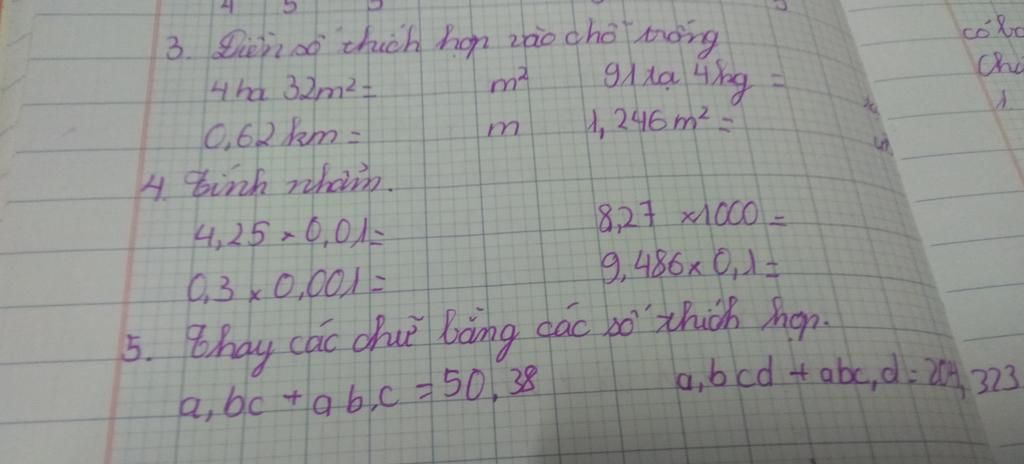 4 5 5
3. Điền số thích hợp vào chỗ trống
4 ha 32m² = m² 91 tạ 4kg =
0,62 km = m 1,246m² =
4. Tính nhẩm.
4,25 × 0,01 = 8,27 × 1000 =
0,3 × 0,001 = 9,486 × 0,1 =
5. Thay các chữ bằng các số thích hợp.
a,bc + ab,c = 50,38 a,bcd + abc,d = 204,323
1